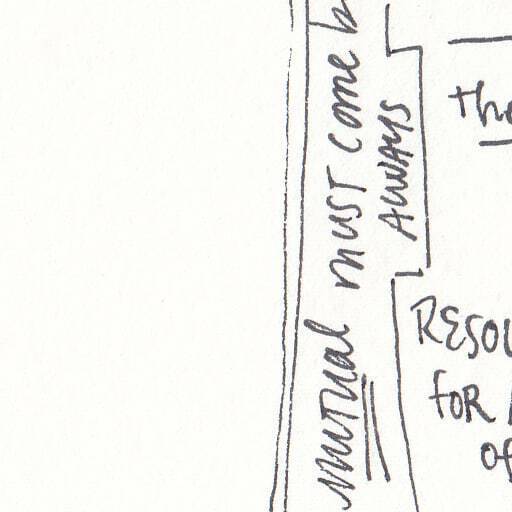 mutual must come
ALWAYS
the
RESOU
FOR
of